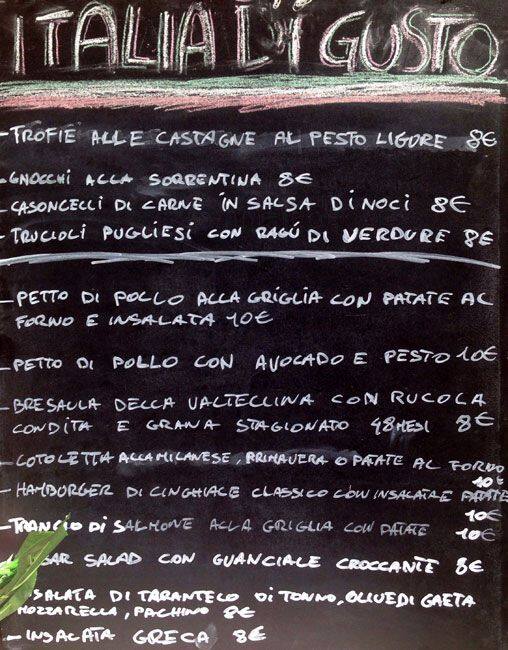 ITALIA Di GUSTO
- TROFIE ALLE CASTAGNE AL PESTO LIGURE 8€
- GNOCCHI ALLA SORRENTINA 8€
- CASONCELLI DI CARNE IN SALSA DI NOCI 8€
- TRUCIOLI PUGLIESI CON RAGÚ DI VERDURE 8€
- PETTO DI POLLO ALLA GRIGLIA CON PATATE AL
FORNO E INSALATA 10€
- PETTO DI POLLO CON AVOCADO E PESTO 10€
- BRESAULA DELLA VALTELLINA CON RUCOLA
CONDITA E GRANA STAGIONATO 48 MESI 8€
- COTOLETTA ALLA MILANESE, PRIMAVERA O PATATE AL FORNO
10€
- HAMBURGER DI CINGHIALE CLASSICO CON INSALATA E PATATE
10€
- TRANCIO DI SALMONE ALLA GRIGLIA CON PATATE 10€
SALAD CON GUANCIALE CROCCANTE 8€
SALATA DI TARANTELO DI TONNO, OLIVE DI GAETA
MOZZARELLA, PACHINO 8€
- INSALATA GRECA 8€